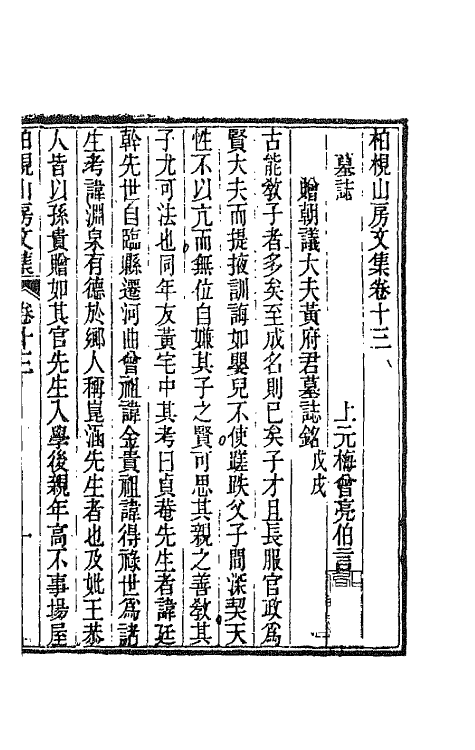 柏梘山房文集卷十三
上元梅曾亮伯言
墓誌
贈朝議大夫黃府君墓誌銘 戊戌
古能教子者多矣至成名則已矣子才且長服官政為
賢大夫而提掖訓誨如嬰兒不使蹉跌父子間深契天
性不以亢而無位自嫌其子之賢可思其親之善教其
子尤可法也同年友黃宅中其考曰貞菴先生者諱廷
幹先世自臨縣遷河曲曾祖諱金貴祖諱得祿世為諸
生考諱淵泉有德於鄉人稱崑涵先生者也及妣王恭
人皆以孫貴贈如其官先生入學後親年高不事場屋
柏梘山房文集 卷十三 一